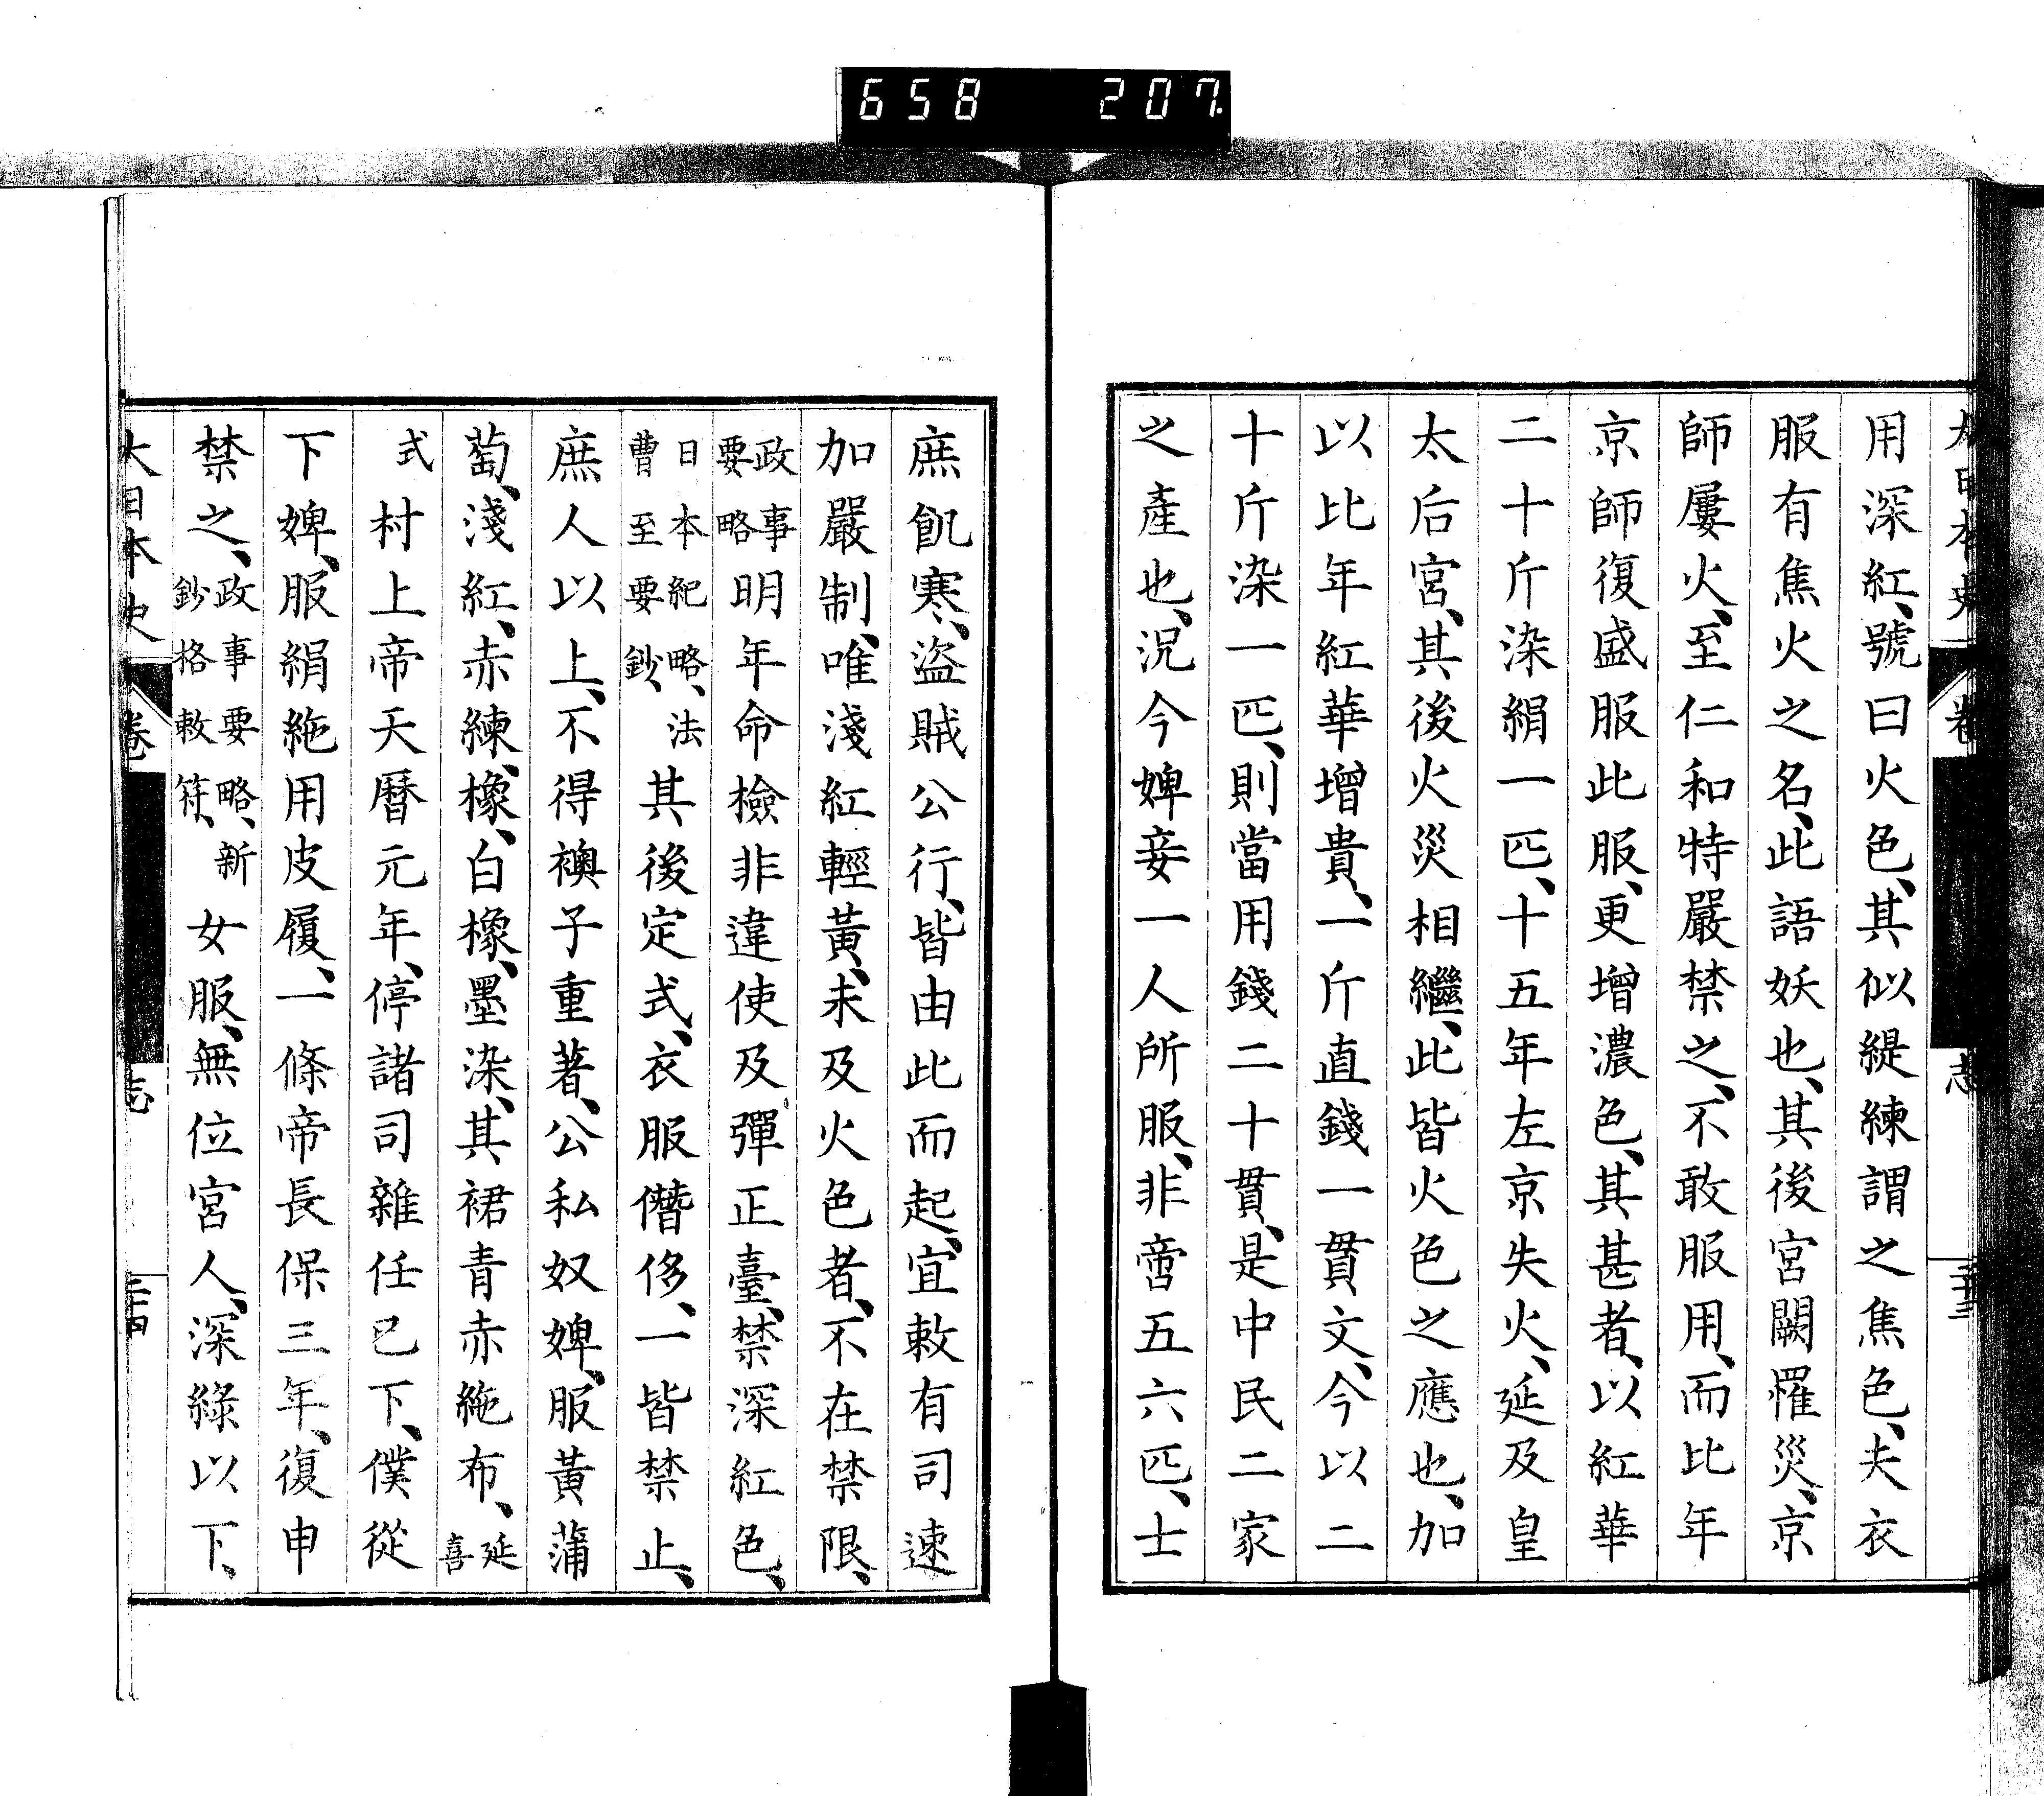 658 207
用深紅、號曰火色、其似緹練謂之焦色、夫衣
服有焦火之名、此語妖也、其後宮闕罹災、京
師屢火、至仁和特嚴禁之、不敢服用、而比年
京師復盛服此服、更增濃色、其甚者、以紅華
二十斤染絹一匹、十五年左京失火、延及皇
太后宮、其後火災相繼、此皆火色之應也、加
以比年紅華增貴、一斤直錢一貫文、今以二
十斤染一匹、則當用錢二十貫、是中民二家
之產也、況今婢妾一人所服、非啻五六匹、士
庶飢寒、盜賊公行、皆由此而起、宜敕有司速
加嚴制、唯淺紅輕黃、未及火色者、不在禁限、
政事要略明年命檢非違使及彈正臺、禁深紅色、
日本紀略、法曹至要鈔、其後定式、衣服僭侈、一皆禁止、
庶人以上、不得襖子重著、公私奴婢、服黃蒲
萄、淺紅、赤練、橡、白橡、墨染、其裙青赤絁布、延喜
式村上帝天曆元年、停諸司雜任已下、僕從
下婢、服絹絁用皮履、一條帝長保三年、復申
禁之、政事要略、新鈔格敕符、女服、無位宮人、深綠以下、
大日本史 卷 志 二十四